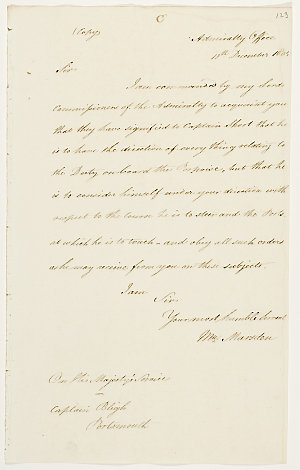 (Copy)
C
123
Admiralty Office
11th December 1805
Sir
I am commanded by my Lords
Commissioners of the Admiralty to acquaint you
that they have signified to Captain Short that he
is to have the direction of every thing relating to
the Duty on board the Porpoise, but that he
is to consider himself under your direction with
respect to the course he is to steer and the Ports
at which he is to touch – and obey all such orders
as he may receive from you on these subjects.
I am
Sir
Your most humble Servant
Wm Marsden
On His Majesty's Service
Captain Bligh
Portsmouth